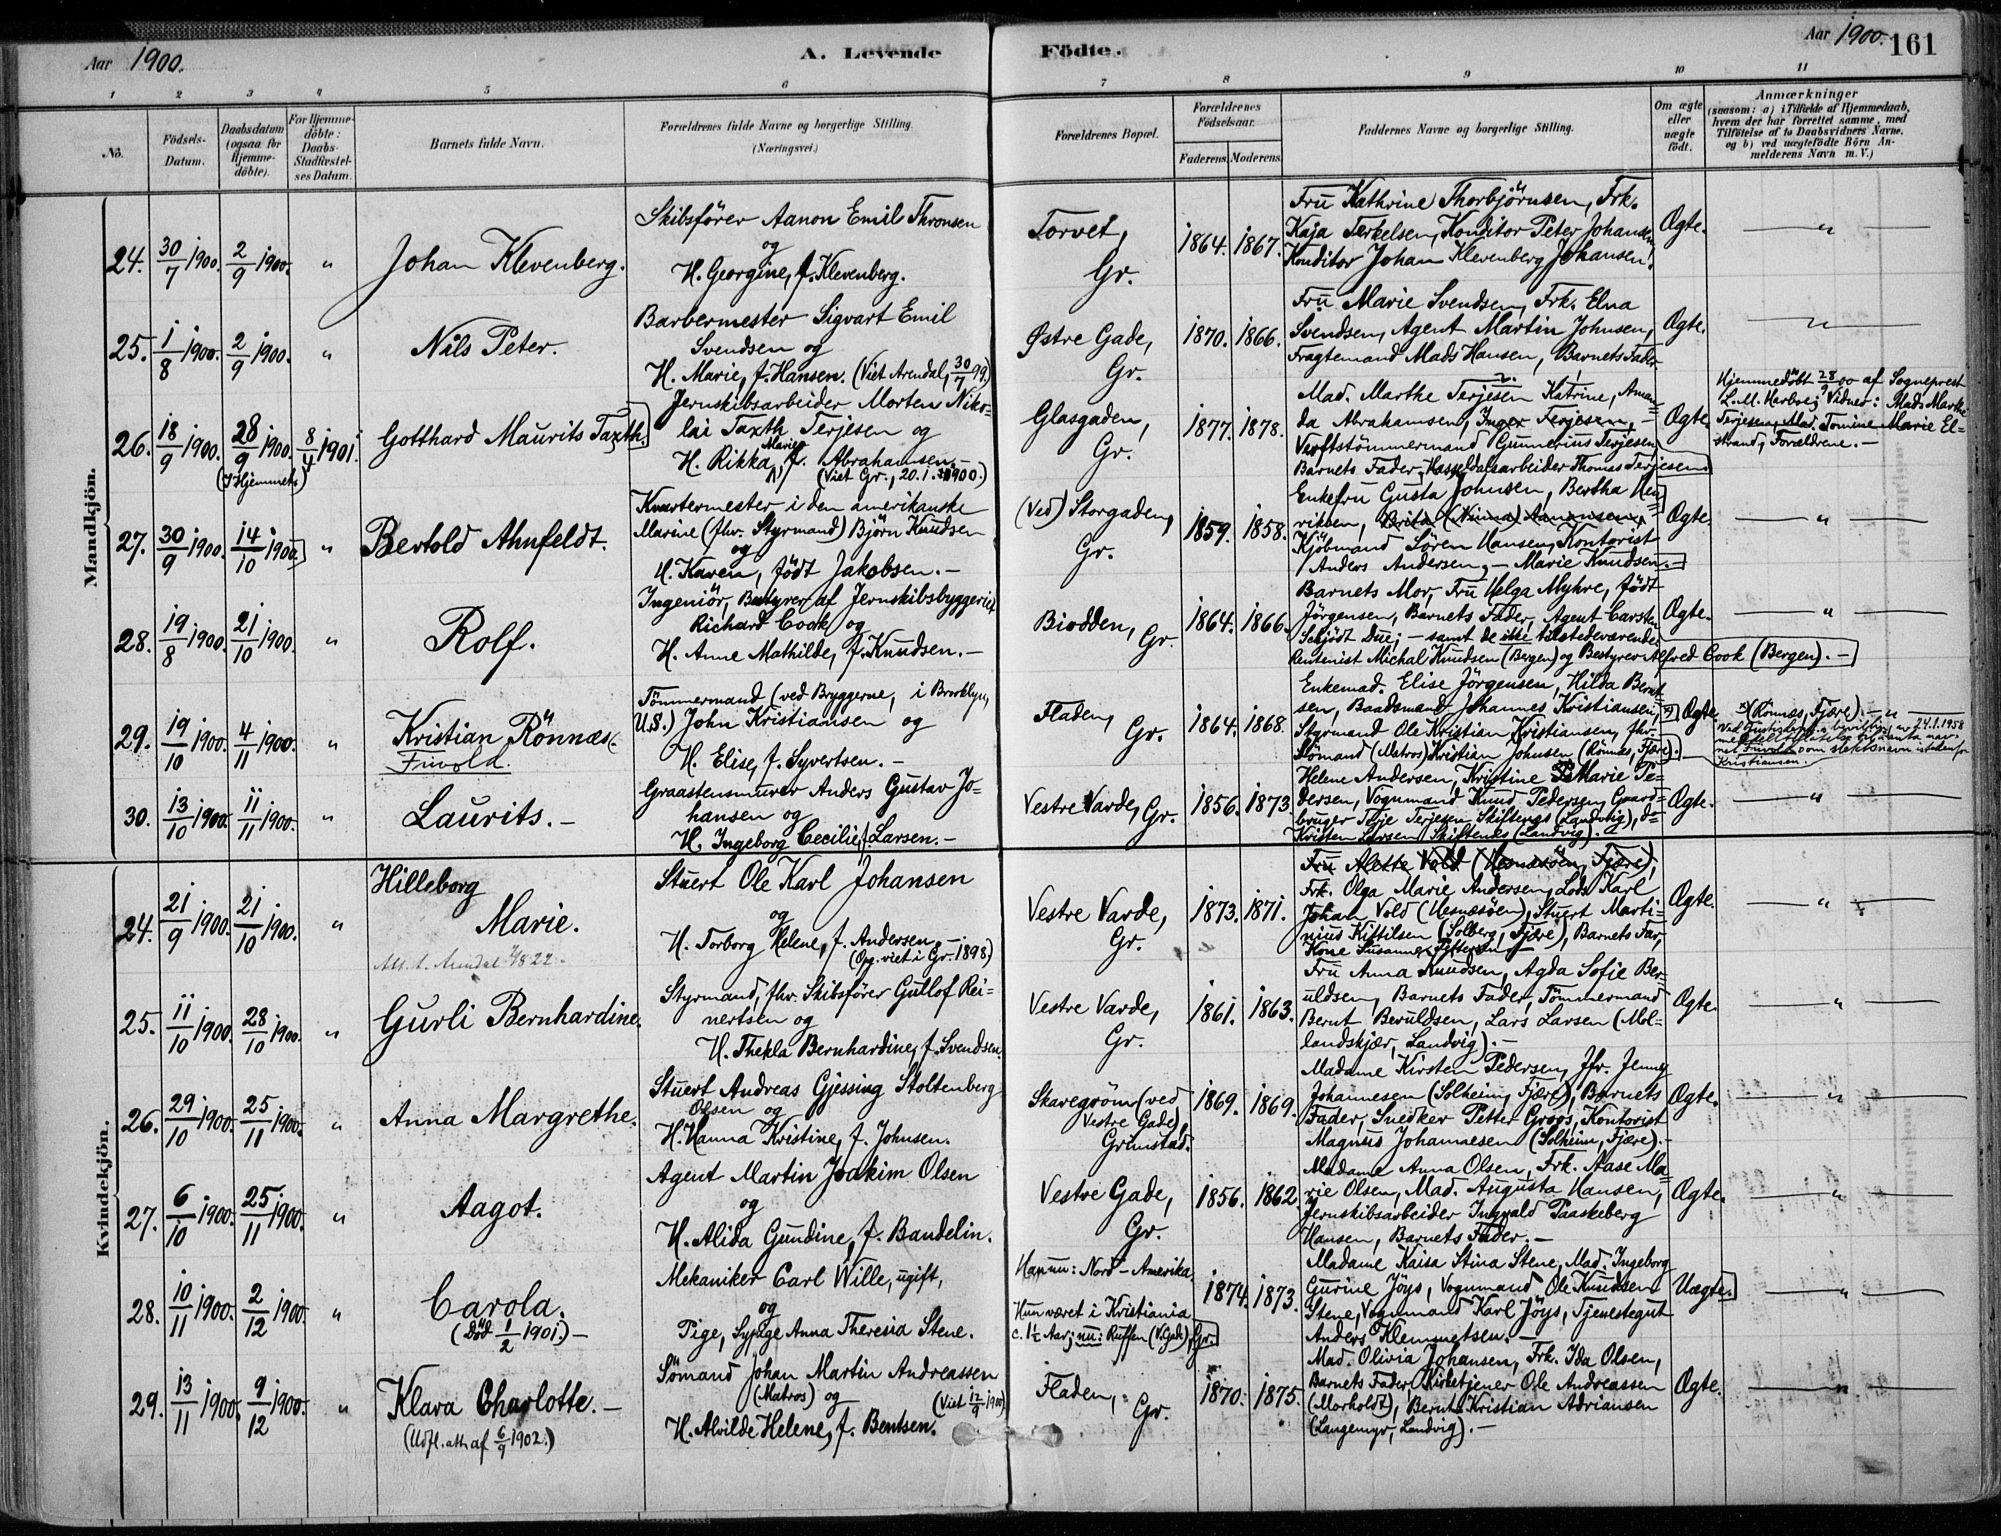 Aar 1900.
A. Levende
Födte.
Aar 1900.
161
1 2 3 4 5 6 7 8 9 10 11
No.
Födsels-
Datum.
Daabsdatum
(ogsaa for
Hjemme-
döbte).
For Hjemme-
döbte:
Daabs-
Stadfæstel-
ses Datum.
Barnets fulde Navn.
Forældrenes fulde Navne og borgerlige Stilling.
(Næringsvei.)
Forældrenes Bopæl.
Forældrenes
Födselsaar.
Faderens.
Moderens.
Faddernes Navne og borgerlige Stilling.
Om ægte
eller
uægte
födt.
Anmærkninger
(saasom: a) i Tilfælde af Hjemmedaab,
hvem der har forrettet samme, med
Tilföielse af to Daabsvidners Navne.
og b) ved uægtefödte Börn An-
melderens Navn m. V.)
Mandkjön.
24. 30/7 1900. 2/9 1900. "
Johan Klevenberg.
Skibsförer Aanon Emil Thronsen
og
H. Georgine, f. Klevenberg.
Torvet,
Gr.
1864. 1867.
Fru Kathrine Thorbjörnsen, Frk.
Kaja Terkelsen, Konditor Peter Johansen,
Konditor Johan Klevenberg Johansen.
Ægte. "
25. 1/8 1900. 2/9 1900. "
Nils Peter.
Barbermester Sigvart Emil
Svendsen og
H. Marie, f. Hansen. (Viet Arendal, 30/7 99.)
Østre Gade,
Gr.
1870. 1866.
Fru Marie Svendsen, Frk. Elna
Svendsen, Agent Martin Johnsen,
Fragtemand Mads Hansen, Barnets Fader
Ægte. "
26. 18/9 1900. 28/9 1900. 8/4 1901.
(I Hjemmet)
Gotthard Maurits Taxth.
Jernskibsarbeider Morten Niko-
lai Taxth Terjesen og
H. Rikka Marie, f. Abrahamsen.-
(Viet Gr., 20.1.1900.)
Glasgaden,
Gr.
1877. 1878.
Mad. Marthe Terjesen, Katrine, Aman-
da Abrahamsen, Inger Terjesen, -
Verftstömmermand Gunnerius Terjesen,
Barnets Fader, Hasseldalsarbeider Thomas Terjesen
Ægte.
Hjemmedöbt 28/9 00 af Sogneprest
L. M. Harboe; Vidner: Mad. Marthe
Terjesen, Mad. Tomine Marie El-
strand, Forældrene. -
27. 30/9 1900. 14/10 1900. "
Bertold Ahnfeldt.
Kvartermester i den amerikanske
Marine (fhr. Styrmand) Björn Knudsen
og
H. Karen, födt Jakobsen. -
(Ved) Storgaden,
Gr.
1859. 1858.
Enkefru Gusta Johnsen, Bertha Hen-
riksen,
Kjöbmand Sören Hansen, Kontorist
Anders Andersen, - Marie Knudsen. -
Ægte. "
28. 19/8 1900. 21/10 1900. "
Rolf.
Ingeniör, Bestyrer af Jernskibsbyggeriet
Richard Cook og
H. Anne Mathilde, f. Knudsen. -
Biodden, Gr.
1864. 1866.
Barnets Mor, Fru Helga Myhre, födt
Jörgensen, Barnets Fader, Agent Carsten
Schjödt Due; - samt de ikke tilstedeværende
Rentenist Michal Knudsen (Bergen) og Bestyrer Alfred Cook (Bergen). -
Ægte. "
29. 19/10 1900. 4/11 1900. "
Kristian Rönnæs.
Finold.
Tömmermand (ved Bryggerne, i Brooklyn,
U.S.) John Kristiansen og
H. Elise, f. Syvertsen. -
Fladen,
Gr.
1864. 1868.
Enkemad. Elise Jörgensen, Hilda Bernt-
sen, Baadsmand Johannes Kristiansen,
Styrmand Ole Kristian Kristiansen, fhr.
Sömand (Matros) Kristian Johnsen (Rönnes, Fjære).
Ægte.
(Rönnæs, Fjære). - "
24.1.1958
som slektsnavn istedenfor
Kristiansen.
30. 13/10 1900. 11/11 1900. "
Laurits. -
Graastensmurer Anders Gustav Jo-
hansen og
H. Ingeborg Cecilie, f. Larsen. -
Vestre Varde, Gr.
1856. 1873
Helene Andersen, Kristine Marie Pe-
dersen, Vognmand Knud Pedersen, Gaard-
bruger Terje Terjesen Skiftenes (Landvig), do
Kristen Larsen Skiftenes (Landvig). -
Ægte. "
Kvindekjön.
24. 21/9 1900. 21/10 1900. "
Hilleborg
Marie.
Stuert Ole Karl Johansen
og
H. Torborg Helene, f. Andersen. -
(Opg. viet i Gr. 1898)
Vestre Varde,
Gr.
1873. 1871.
Fru Alette Vold (Hesnæsöen, Fjære),
Frk. Olga Marie Andersen, Lods Karl
Johan Vold (Hesnæsöen), Stuert Marti-
nius Kittilsen (Solberg, Fjære), Barnets Far,
Kone Susanne Pettersen -
Ægte. "
25. 11/10 1900. 28/10 1900. "
Gurli Bernhardine.
Styrmand, fhr. Skibsförer Gullof Rei-
nertsen og
H. Thekla Bernhardine, f. Svendsen.
Vestre Varde,
Gr.
1861. 1863.
Fru Anna Knudsen, Agda Sofie Ber-
uldsen, Barnets Fader, Tömmermand
Bernt Beruldsen, Lars Larsen (Mol-
landskjær, Landvig). -
Ægte. "
26. 29/10 1900. 25/11 1900. "
Anna Margrethe.
Stuert Andreas Gjessing Stoltenberg
Olsen og
H. Hanna Kristine, f. Johnsen.
Skaregrøm (ved
Vestre Gade),
Grimstad.
1869. 1869.
Madame Kirsten Pedersen, Jfr. Jenny
Johannesen (Solheim, Fjære), Barnets
Fader, Snedker Petter Groos, Kontorist
Magnus Johannesen (Solheim, Fjære). -
Ægte. "
27. 6/10 1900. 25/11 1900. "
Aagot.
Agent Martin Joakim Olsen
og
H. Alida Gundine, f. Bandelin.
Vestre Gade,
Gr.
1856. 1862.
Madame Anna Olsen, Frk. Aase Ma-
rie Olsen, Mad. Augusta Hansen,
Jernskibsarbeider Ingvald Paaskeberg
Hansen, Barnets Fader. -
Ægte. "
28. 10/11 1900. 2/12 1900. "
Carola.
(Död 1/2 1901.) -
Mekaniker Carl Wille, ugift,
og
Pige, Sypige Anna Theresia Stene.
Han nu: Nord-Amerika.
Hun været i Kristiania
c. 1½ Aar; nu: Ruffen (V. Gade), Gr.
1874. 1873.
Madame Kaisa Stina Stene, Mad. Ingeborg
Gurine Jöys, Vognmand Ole Knudsen
Stene, Vognmand Karl Jöys, Tjenestegut
Anders Klemmetsen. -
Uægte. "
29. 13/11 1900. 9/12 1900. "
Klara Charlotte. -
(Udfl. att. af 6/9 1902.)
Sömand Johan Martin Andreassen
(Matros) og (Viet 12/9 1900)
H. Alvilde Helene, f. Bentsen.
Fladen,
Gr.
1870. 1875.
Mad. Olivia Johansen, Frk. Ida Olsen,
Barnets Fader, Kirketjener Ole Andreassen
(Morholdt), Bernt Kristian Adriansen
(Langemyr, Landvig). -
Ægte. "